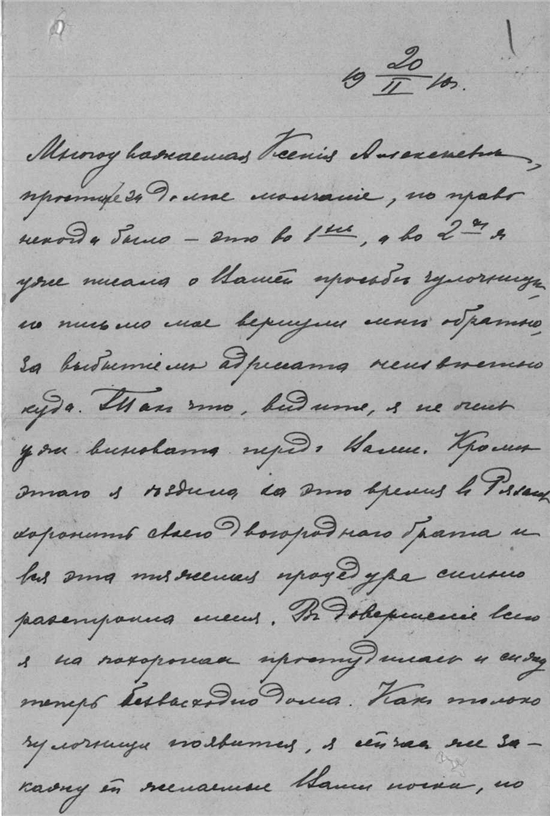 19 20/II 10г.
Многоуважаемая Ксенія Алексеевна,
простите за долгое молчаніе, но право
некогда было – это во 1ыхъ, а во 2хъ я
уже писала о Вашей просьбѣ чулочницѣ,
но письмо мое вернули мнѣ обратно,
за выбытіемъ адресата неизвѣстно
куда. Такъ что, видите, я не очень
ужъ виновата передъ Вами. Кромѣ
этаго я ѣздила за это время въ Рязань
хоронить своего двоюроднаго брата и
вся эта тяжелая процедура сильно
разстроила меня. Въ довершеніе всего
я на похоронахъ простудилась и сижу
теперь безвыходно дома. Какъ только
чулочница появится, я сейчасъ же за-
кажу ей желаемые Вами носки, но